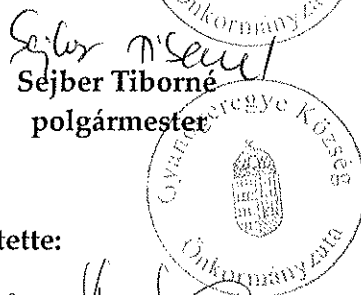 Önkormányzata
Sejber Tiborné
polgármester
Gyanógeregye Község
Önkormányzata
tette: